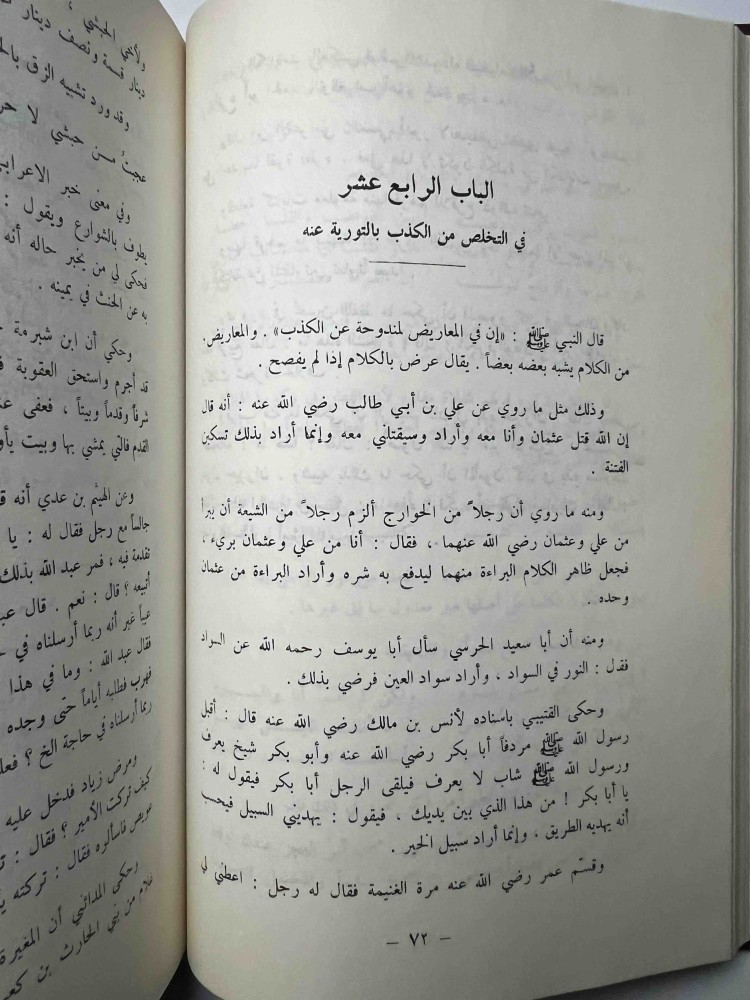 الباب الرابع عشر
في التخلص من الكذب بالتورية عنه
قال النبي ﷺ : «إن في المعاريض لمندوحة عن الكذب» . والمعاريض
من الكلام يشبه بعضه بعضاً . يقال عرض بالكلام إذا لم يفصح .
وذلك مثل ما روي عن علي بن أبي طالب رضي الله عنه : أنه قال
إن الله قتل عثمان وأنا معه وأراد وسيقتلني معه وإنما أراد بذلك تسكين
الفتنة .
ومنه ما روي أن رجلاً من الخوارج ألزم رجلاً من الشيعة أن يبرأ
من علي وعثمان رضي الله عنهما ، فقال : أنا من علي وعثمان بريء ،
فجعل ظاهر الكلام البراءة منهما ليدفع به شره وأراد البراءة من عثمان
وحده .
ومنه أن أبا سعيد الحرسي سأل أبا يوسف رحمه الله عن السواد
فقال : النور في السواد ، وأراد سواد العين فرضي بذلك .
وحكى القتيبي باسناده لأنس بن مالك رضي الله عنه قال : أقبل
رسول الله ﷺ مردفاً أبا بكر رضي الله عنه وأبو بكر شيخ يعرف
ورسول الله ﷺ شاب لا يعرف فيلقى الرجل أبا بكر فيقول له :
يا أبا بكر ! من هذا الذي بين يديك ، فيقول : يهديني السبيل فيحسب
أنه يهديه الطريق ، وإنما أراد سبيل الخير .
وقسّم عمر رضي الله عنه مرة الغنيمة فقال له رجل : اعطني لي
– ٧٢ –
ولأخي الحبشي ،
دينار قسمة ونصف دينار
وقد ورد تشبيه الزق
عجبتُ من حبشي لا
وفي معنى خبر
يطوف بالشوارع ويقول :
فحكى لي من يخبر حاله أنه
به عن الحنث في يمينه .
وحكي أن ابن شبرمة
قد أجرم واستحق العقوبة
شرفاً وقدماً وبيتاً ، فعفى
القدم فالتي يمشي بها وبيت
وعن الهيثم بن عدي أنه
جالساً مع رجل فقال له : يا
تقدمة فيه ، فمر عبد الله بذلك
أتبيعه ؟ قال : نعم . قال
عيباً غير أنه ربما أرسلناه في
فقال عبد الله : وما في هذا
فهرب فطلبه أياماً حتى وجده
ربما أرسلناه في حاجة الخ ؟
ومرض زياد فدخل عليه
كيف تركت الأمير ؟ فقال :
عويص فاسألوه فقال : تركته
وحكى المدائني أن المغيرة
غلام من بني الحارث بن